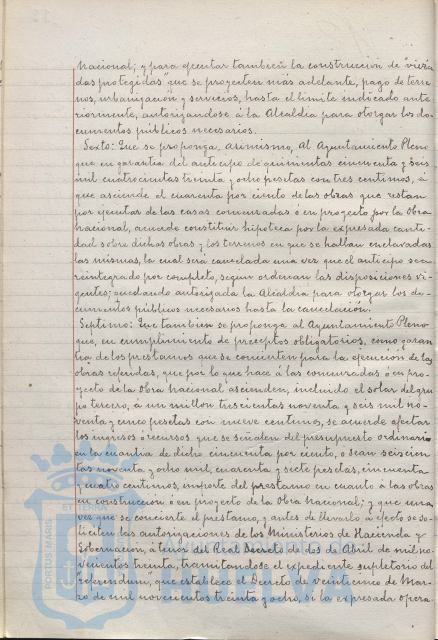 nacional; y para ejecutar tambien la construccion de "vivien
das protegidas" que se proyecten más adelante, pago de terre
nos, urbanizacion y servicios, hasta el limite indicado ante
riormente, autorizandose á la Alcaldia para otorgar los do-
cumentos públicos necesarios.
Sexto: Que se proponga, asimismo, Al Ayuntamiento Pleno
que en garantia del anticipo de quinientas cincuenta y seis
mil cuatrocientas treinta y ocho pesetas con tres centimos, á
que asciende el cuarenta por ciento de las obras que restan
por ejecutar de las casas comenzadas ó en proyecto por la Obra
nacional, acuerde constituir hipoteca por la expresada canti-
dad sobre dichas obras y los terrenos en que se hallan enclavadas
las mismas, la cual será cancelada una vez que el anticipo sea
reintegrado por completo, segun ordenan las disposiciones vi-
gentes; quedando autorizada la Alcaldia para otorgar los do-
cumentos públicos necesarios hasta la cancelación.
Septimo: Que tambien se proponga al Ayuntamiento Pleno
que, en cumplimiento de preceptos obligatorios, como garan
tia de los prestamos que se concierten para la ejecucion de las
obras referidas, que por lo que hace á las comenzadas ó en pro-
yecto de la Obra nacional ascienden, incluido el solar del gru
po tercero, á un millon trescientas noventa y seis mil no-
venta y cinco pesetas con nueve centimos, se acuerde afectar
los ingresos ó recursos que se señalen del presupuesto ordinario
en la cuantia de dicho cincuenta por ciento, ó sean seiscien
tas noventa y ocho mil, cuarenta y siete pesetas, cincuenta
y cuatro centimos, importe del prestamo en cuanto á las obras
en construcción ó en proyecto de la Obra nacional; y que una
vez que se concierte el prestamo, y antes de llevarlo á efecto se so-
liciten las autorizaciones de los Ministerios de Hacienda y
Gobernacion, á tenor del Real Decreto de dos de Abril de mil no-
vecientos treinta, tramitandose el expediente supletorio del
"referendum", que establece el Decreto de veinticinco de Mar-
zo de mil novecientos treinta y ocho, si la expresada opera-
ET TERRA
PORTUS MARIS